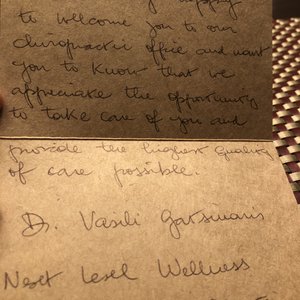 happy
to welcome you to our
chiropractic office and want
you to know that we
appreciate the opportunity
to take care of you and
provide the highest quality
of care possible.
Dr. Vasili Gatsinaris
Next Level Wellness